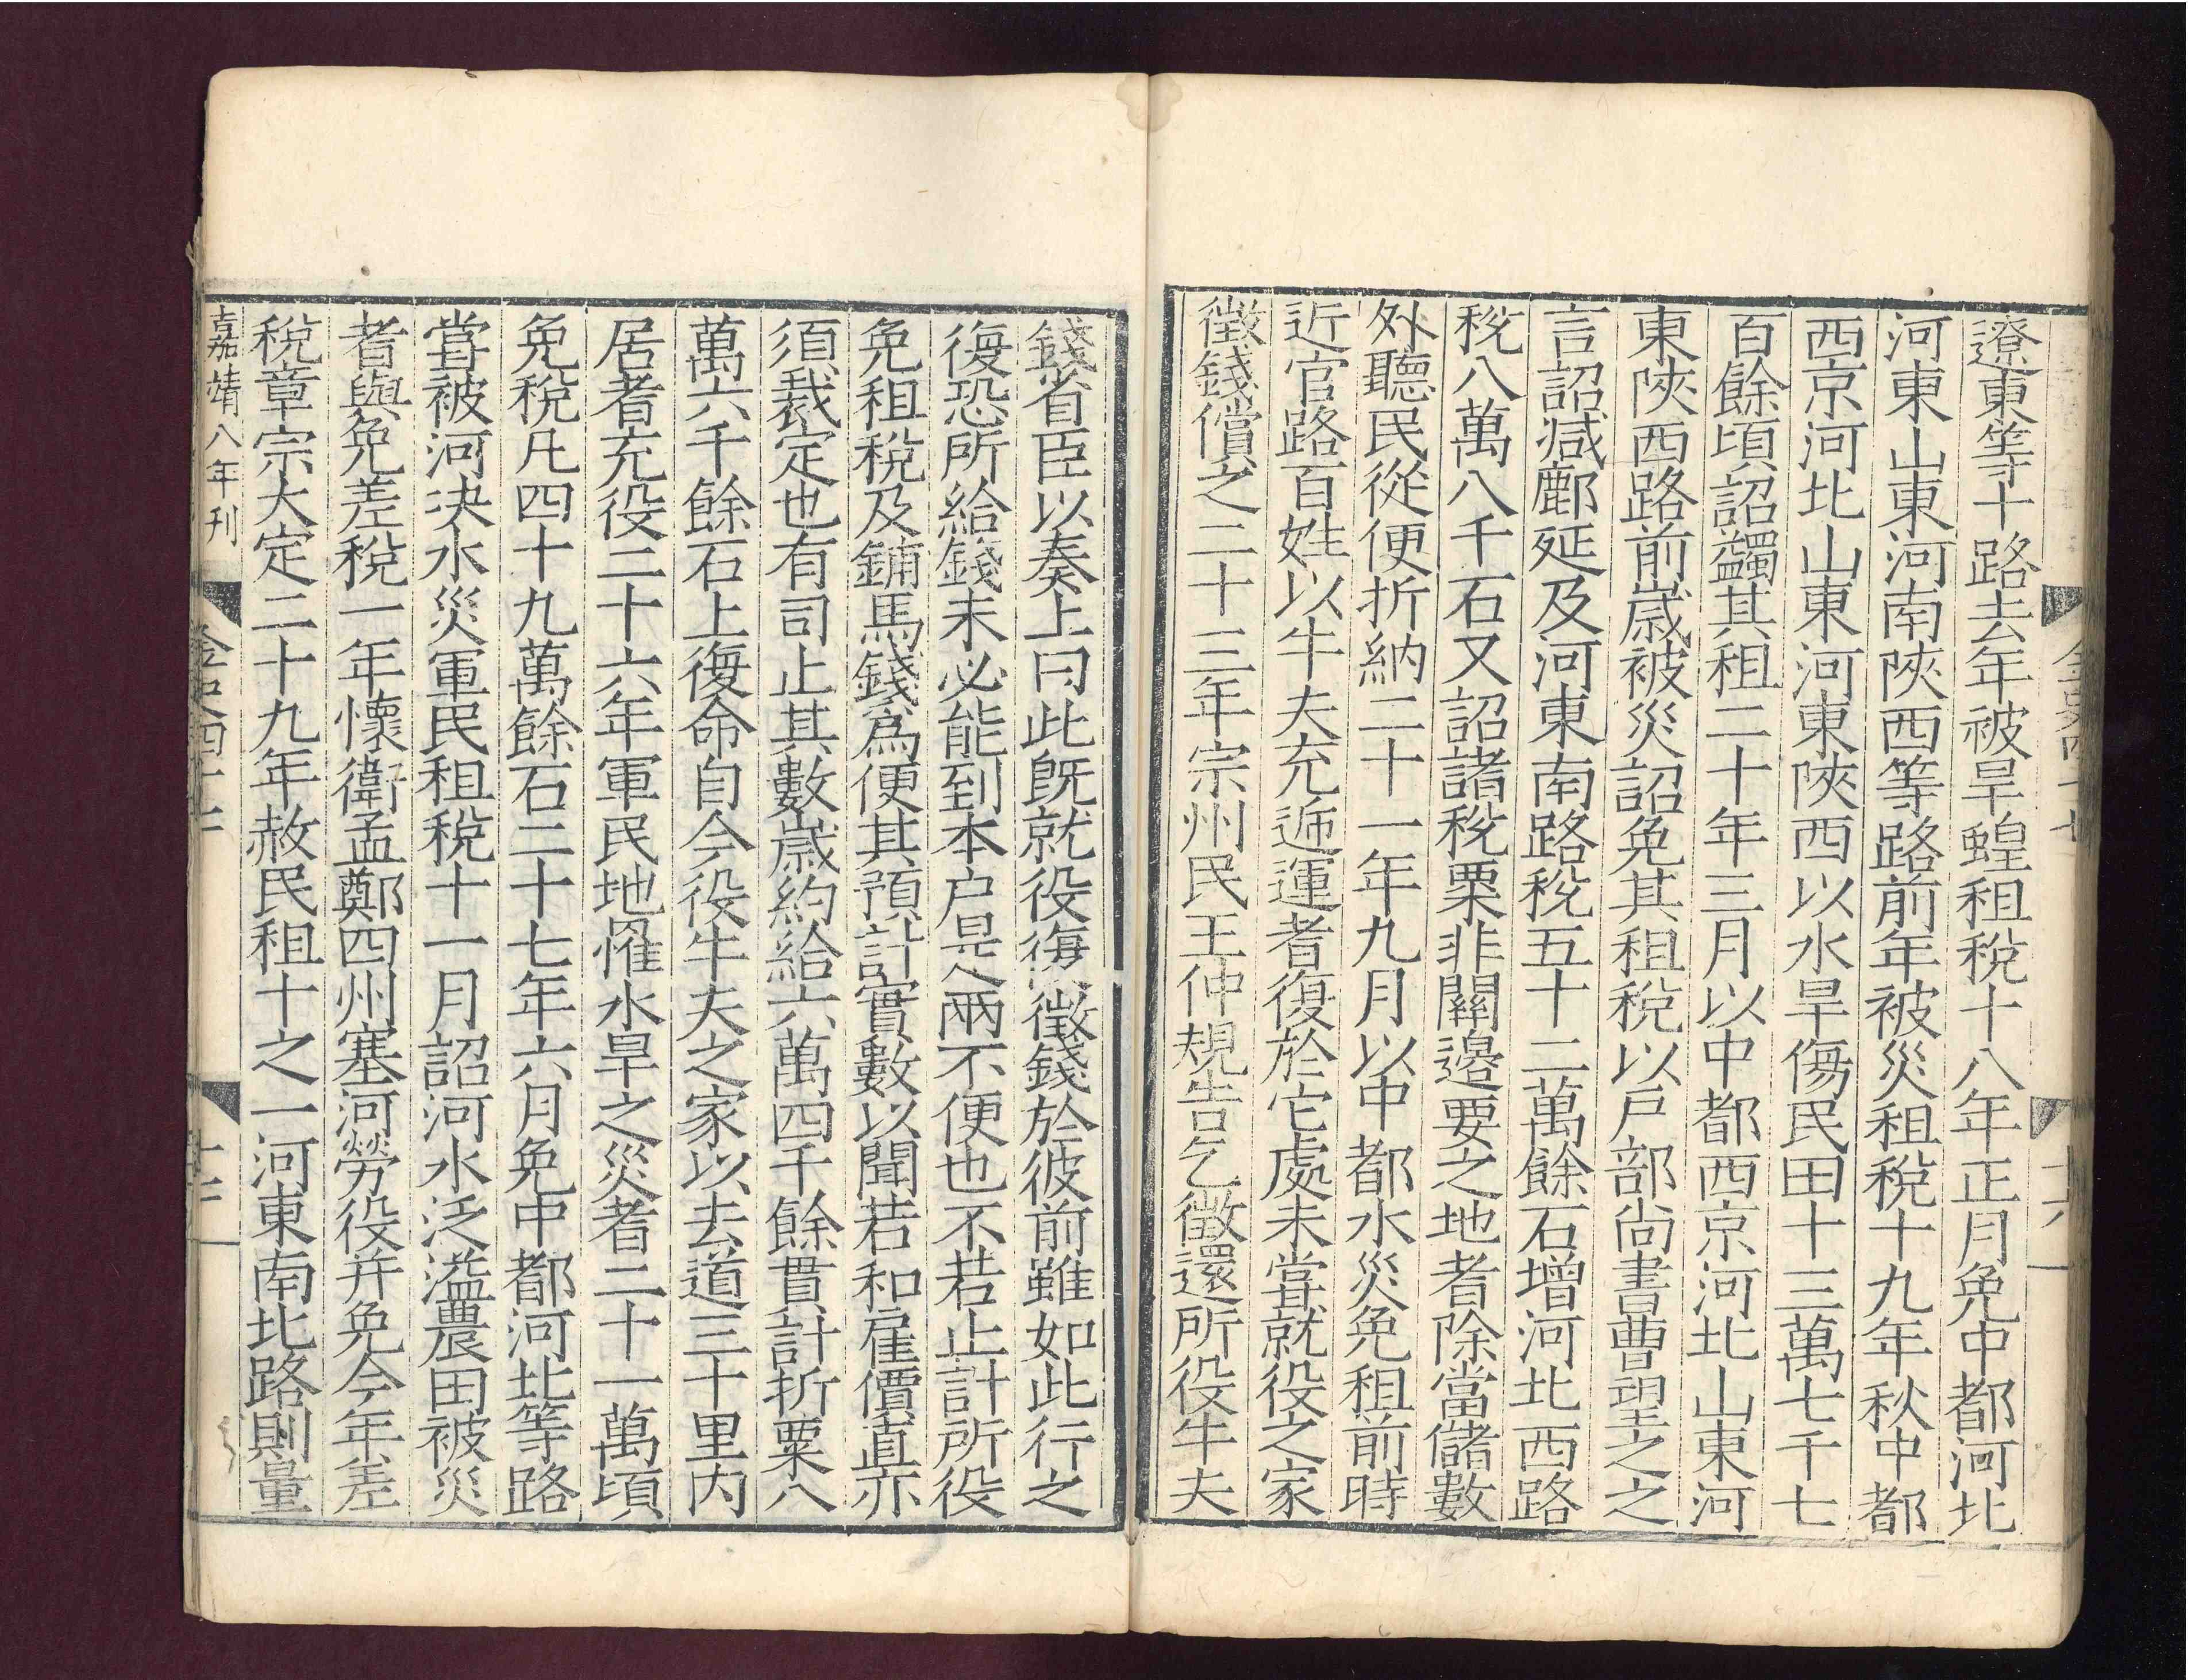 遼東等十路去年被旱蝗租稅十八年正月免中都河北
河東山東河南陝西等路前年被災租稅十九年秋中都
西京河北山東河東陝西以水旱傷民田十三萬七千七
百餘頃詔蠲其租二十年三月以中都西京河北山東河
東陝西路前歲被災詔免其租稅以戶部尚書曹望之之
言詔減鄜延及河東南路稅五十二萬餘石增河北西路
稅八萬八千石又詔諸稅粟非關邊要之地者除當儲數
外聽民從便折納二十一年九月以中都水災免租前時
近官路百姓以牛夫充遞運者復於它處未嘗就役之家
徵錢償之二十三年宗州民王仲規告乞徵還所役牛夫
錢省臣以奏上曰此既就役復徵錢於彼前雖如此行之
復恐所給錢未必能到本户是兩不便也不若止計所役
免租稅及鋪馬錢爲便其預計實數以聞若和雇價直亦
須裁定也有司止其數歲約給六萬四千餘貫計折粟八
萬六千餘石上復命自今役牛夫之家以去道三十里内
居者充役二十六年軍民地罹水旱之災者二十一萬頃
免稅凡四十九萬餘石二十七年六月免中都河北等路
嘗被河決水災軍民租稅十一月詔河水泛溢農田被災
者與免差稅一年懷衛孟鄭四州塞河勞役并免今年差
稅章宗大定二十九年赦民租十之一河東南北路則量
嘉靖八年刊
金史四十七